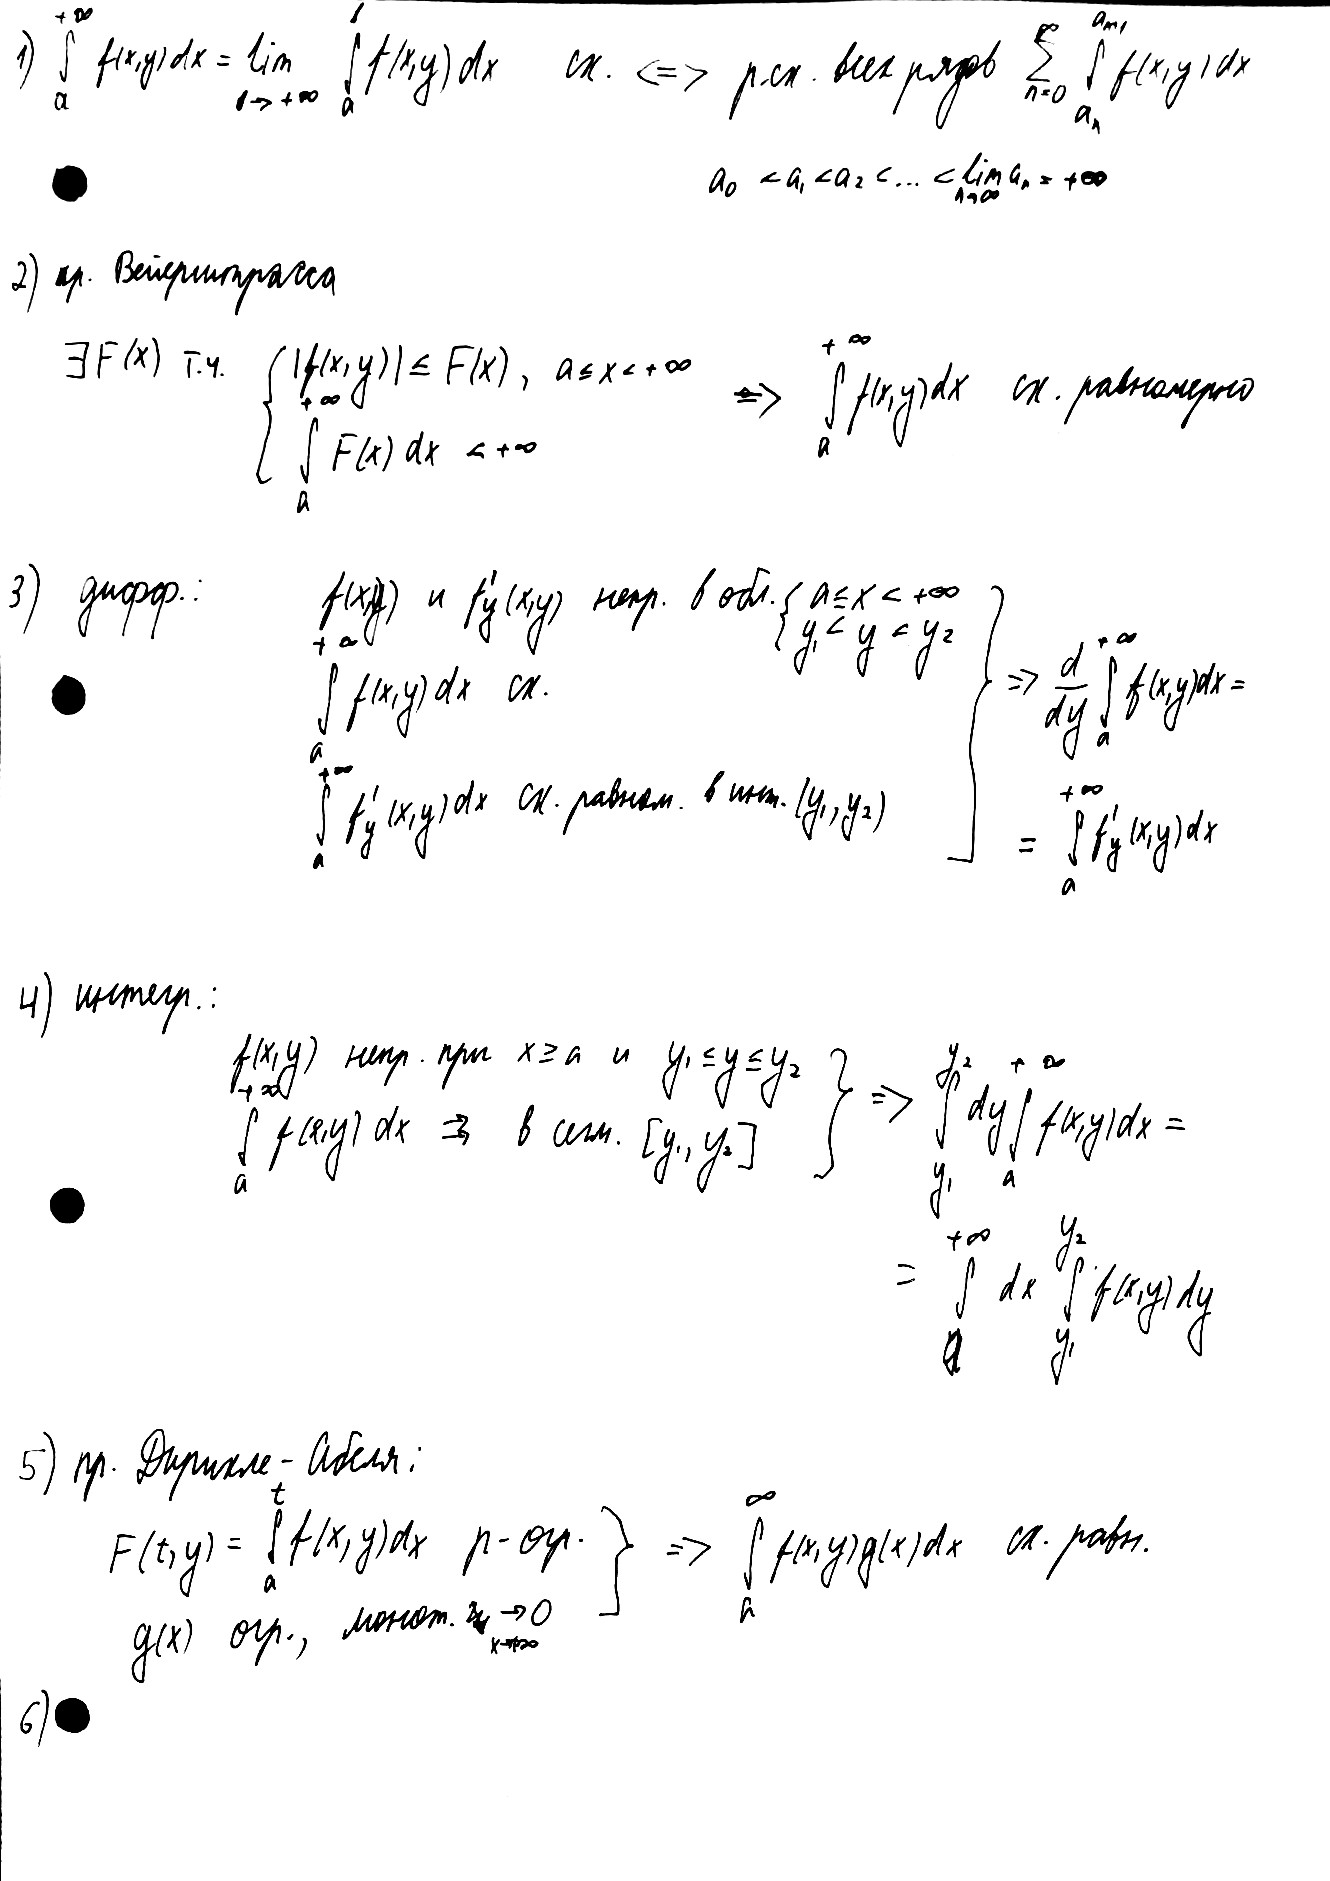 1) ∫_a^{+∞} f(x,y) dx = lim_{b→+∞} ∫_a^b f(x,y) dx сх. <=> р.сх. всех рядов ∑_{n=0}^∞ ∫_{a_n}^{a_{n+1}} f(x,y) dx
a₀ < a₁ < a₂ < ... < lim_{n→∞} a_n = +∞
2) пр. Вейерштрасса
∃ F(x) т.ч. { |f(x,y)| ≤ F(x), a ≤ x < +∞
∫_a^{+∞} F(x) dx < +∞ => ∫_a^{+∞} f(x,y) dx сх. равномерно
3) дифф.: f(x,y) и f'_y(x,y) непр. в обл. { a ≤ x < +∞
y₁ < y < y₂
∫_a^{+∞} f(x,y) dx сх. } => d/dy ∫_a^{+∞} f(x,y) dx =
∫_a^{+∞} f'_y(x,y) dx сх. равном. в инт. (y₁, y₂) = ∫_a^{+∞} f'_y(x,y) dx
4) интегр.:
f(x,y) непр. при x ≥ a и y₁ ≤ y ≤ y₂
∫_a^{+∞} f(x,y) dx ⇉ в сегм. [y₁, y₂] } => ∫_{y₁}^{y₂} dy ∫_a^{+∞} f(x,y) dx =
= ∫_a^{+∞} dx ∫_{y₁}^{y₂} f(x,y) dy
5) пр. Дирихле-Абеля:
F(t,y) = ∫_a^t f(x,y) dx р-огр. } => ∫_a^∞ f(x,y) g(x) dx сх. равн.
g(x) огр., монот. →0 x→+∞
6)